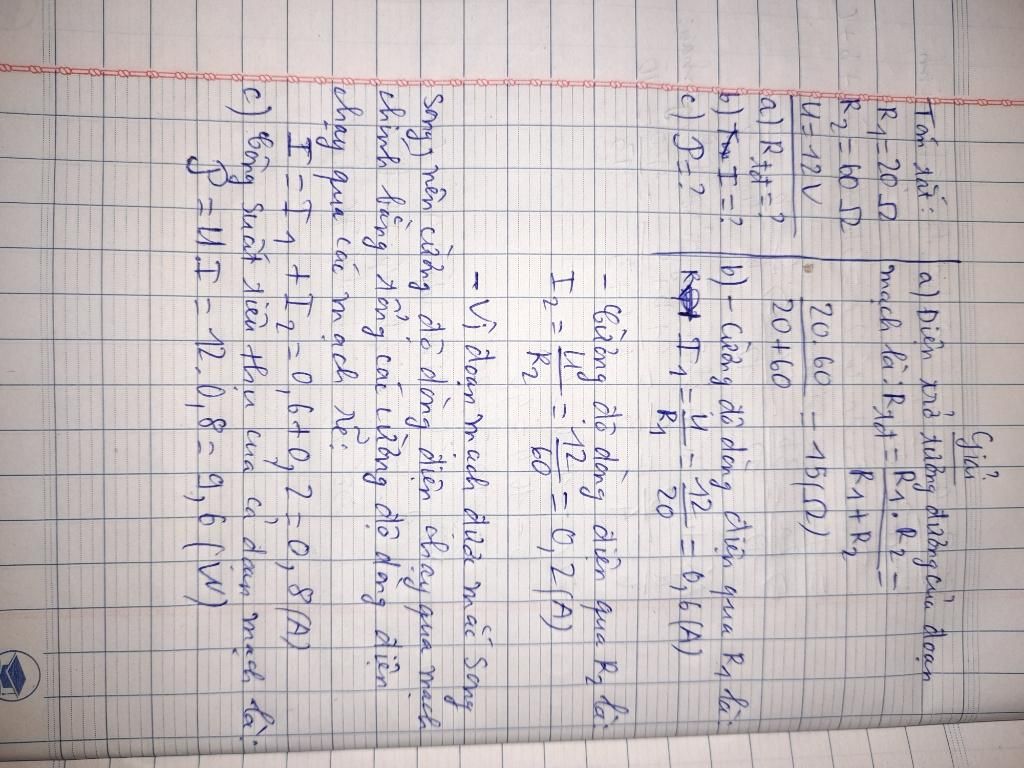 Giải
Tóm tắt:
R1 = 20 Ω
R2 = 60 Ω
U = 12 V
a) Rtđ = ?
b) I = ?
c) P = ?
a) Điện trở tương đương của đoạn
mạch là: Rtđ = R1 . R2 / R1 + R2 =
20.60 / 20+60 = 15 (Ω)
b) - Cường độ dòng điện qua R1 là:
I1 = U / R1 = 12 / 20 = 0,6 (A)
- Cường độ dòng điện qua R2 là:
I2 = U / R2 = 12 / 60 = 0,2 (A)
- Vì đoạn mạch được mắc song
song, nên cường độ dòng điện chạy qua mạch
chính bằng tổng các cường độ dòng điện
chạy qua các mạch rẽ:
I = I1 + I2 = 0,6 + 0,2 = 0,8 (A)
c) Công suất tiêu thụ của cả đoạn mạch là:
P = U.I = 12 . 0,8 = 9,6 (W)